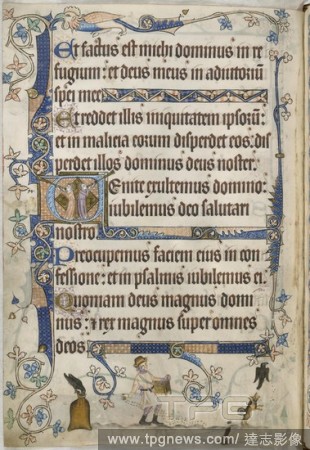 Et factus est michi dominus in re
fugium: et deus meus in adiutoriū
spei mee
Et reddet illis iniquitatem ipsorū:
et in malicia eorum disperdet eos: dis
perdet illos dominus deus noster.
Venite exultemus domino:
iubilemus deo salutari
nostro.
Preocupemus faciem eius in con
fessione: et in psalmis iubilemus ei.
Quoniam deus magnus domi
nus: & rex magnus super omnes
deos.
TPG
www.tpgnews.com/ 達志影像